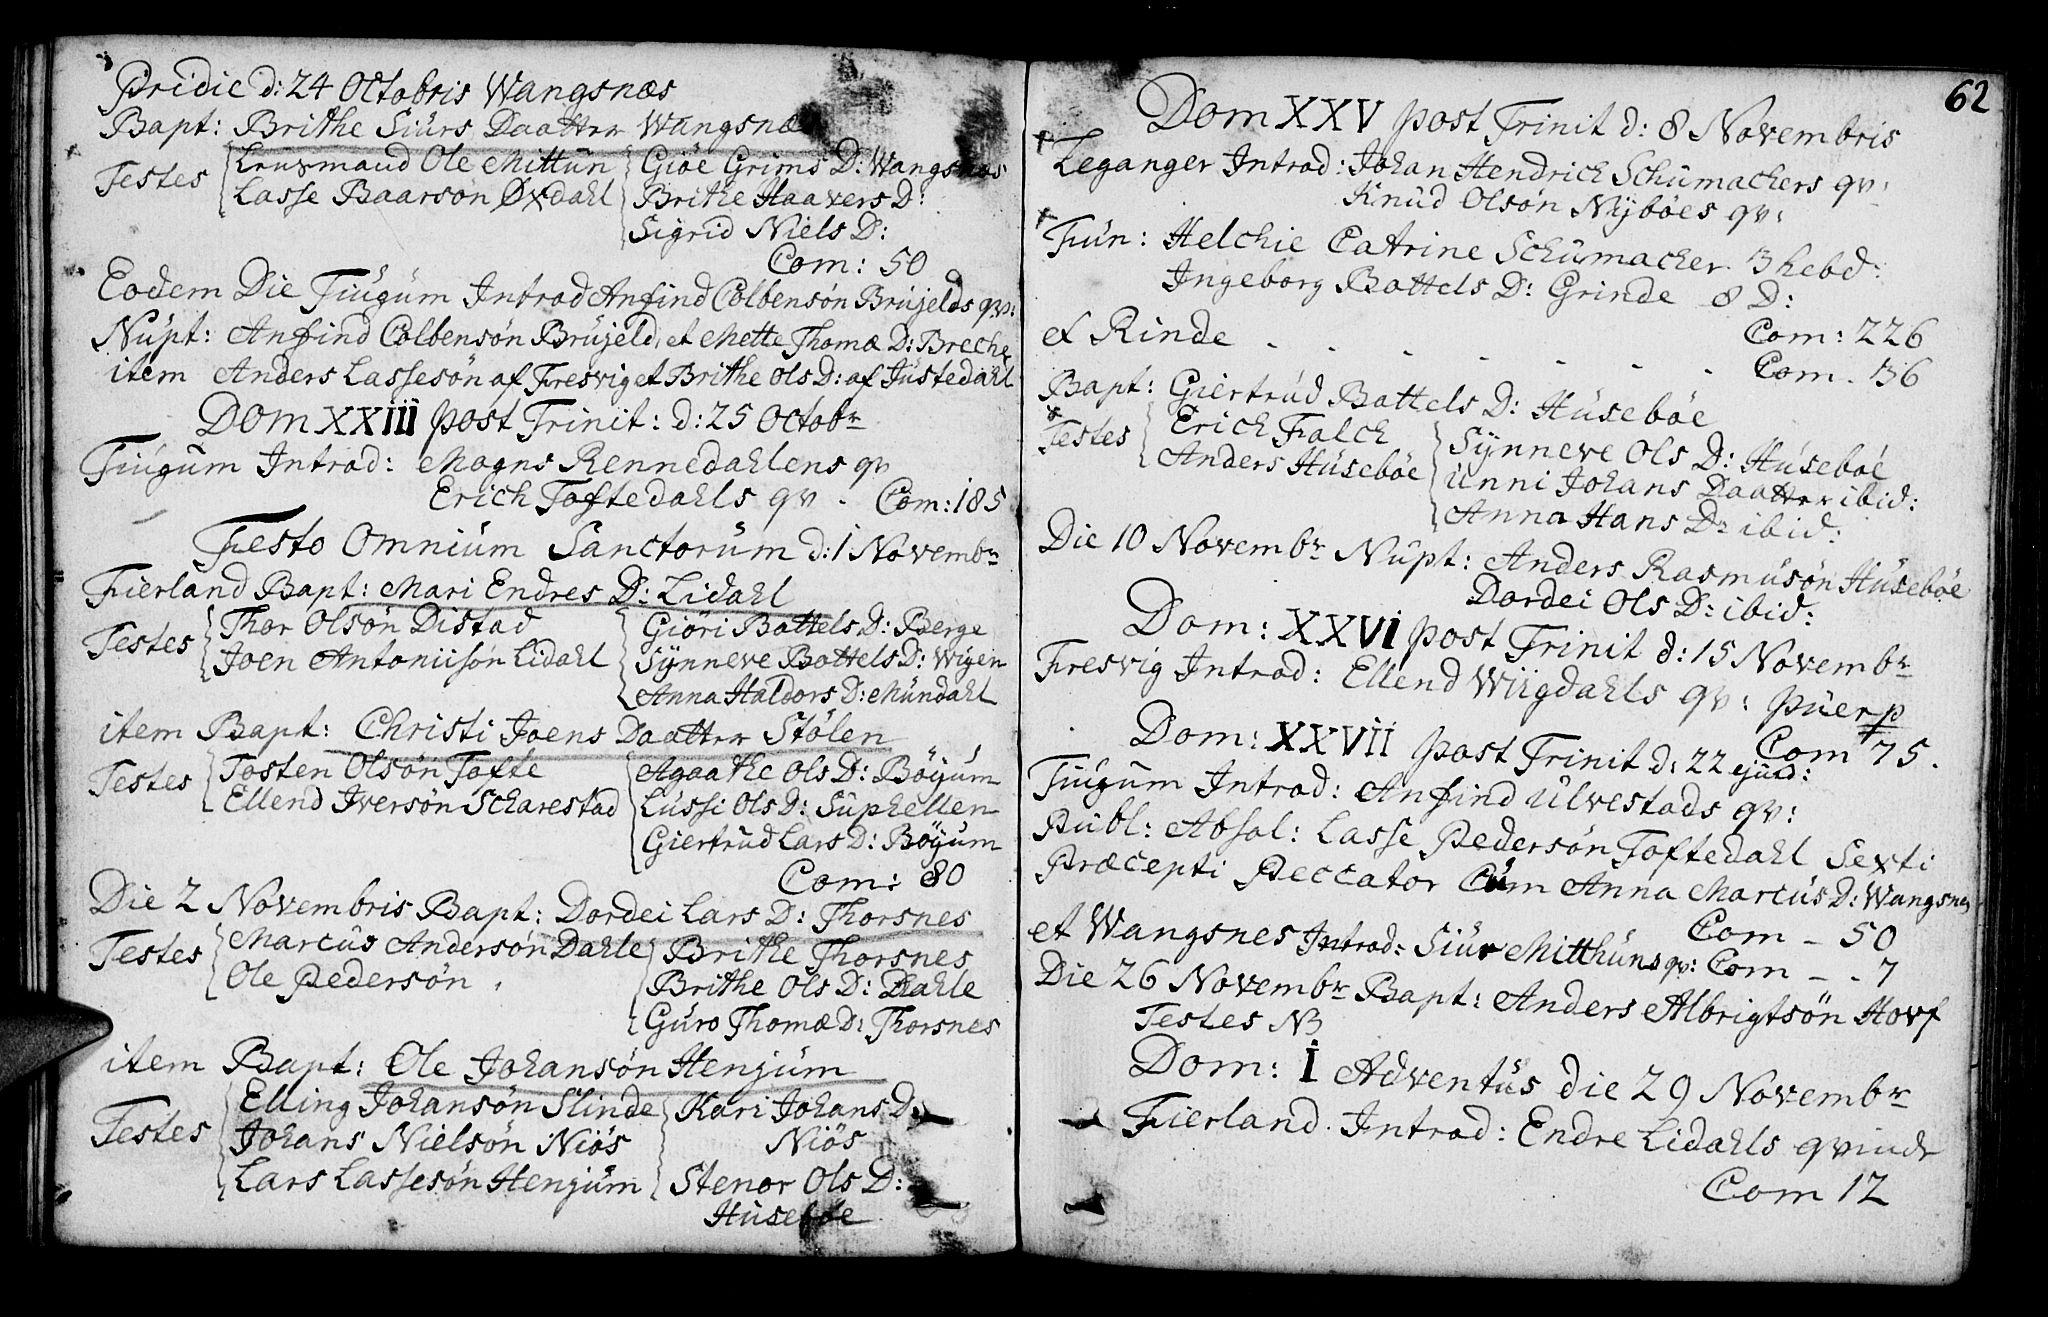 Pridie d: 24 Octobris Wangsnæs
Bapt: Brithe Siurs Daatter Wangsnæ
Testes Leuxmand Ole Mittun Giöe Grims D: Wangsnæs
Lasse Baarsøn Øxdahl Brithe Haavers D:
Sigrid Niels D:
Com: 50
Eodem Die Tiugum Introd Anfind Colbensøn Brujelds qv:
Nupt: Anfind Colbensøn Brujeld, et Mette Thomæ D: Breche
item Anders Lassesøn af Fresvig et Brithe Ols D: af Justedahl
Dom XXIII post Trinit: d: 25 Octobr
Tiugum Introd: Mogns Rennedahlens qv
Erich Toftedahls qv. Com: 185
Festo Omnium Sanctorum d: 1 Novembr
Fierland Bapt: Mari Endres D: Lidahl
Testes Thor Olsøn Distad Giöri Bottels D: Berge
Joen Antoniisøn Lidahl Synneve Bottels D: Wigen
Anna Haldors D: Mundahl
item Bapt: Christi Joens Daatter Stölen
Testes Tosten Olsøn Tofte Agaathe Ols D: Böyum
Ellend Iversøn Scharestad Lussi Ols D: Suphellen
Giertrud Lars D: Böyum
Com: 80
Die 2 Novembris Bapt: Dordei Lars D: Thorsnes
Testes Marcus Andersøn Dahle Brithe Thorsnes
Ole Pedersøn. Brithe Ols D: Dahle
Guro Thomæ D: Thorsnes
item Bapt: Ole Johansøn Henjum
Elling Johansøn Slinde Kari Johans D:
Testes Johans Nielsøn Niös Niös
Lars Lassesøn Henjum Stenor Ols D:
Huseböe
62
Dom XXV post Trinit d: 8 Novembris
Leganger Introd: Johan Hendrich Schumachers qv:
Knud Olsøn Nyböes qv:
Fun: Helchie Catrine Schumacher 3 hebd:
Ingeborg Bottels D: Grinde 8 D:
Com: 226
et Rinde . . . . . . . Com. 36
Bapt: Giertrud Bottels D: Huseböe
Testes Erich Falch Synneve Ols D: Huseböe
Anders Huseböe Unni Johans Daatter ibid:
Anna Hans Dr ibid:
Die 10 Novembr Nupt: Anders Rasmusøn Huseböe
Dordei Ols D: ibid:
Dom: XXVI post Trinit d: 15 Novembr
Fresvig Introd: Ellend Wiigdahls qv: puerp
Com 75.
Dom: XXVII post Trinit d: 22 ejusd:
Tiugum Introd: Anfind Ulvestads qv:
Publ: Absol: Lasse Pedersøn Toftedahl Sexti
Præcepti Peccator Cum Anna Marcus D: Wangsnes
Com - 50
et Wangsnes Introd: Siur Mitthuns qv: Com - . 7
Die 26 Novembr Bapt: Anders Albrigtsøn Hovf
Testes NB
Dom: I Adventus die 29 Novembr
Fierland. Introd: Endre Lidahls qvinde
Com 12